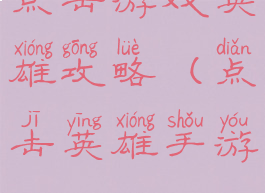 点击游戏英
xióng gōng lüè diǎn
雄攻略（点
jī yīng xióng shǒu yóu
击英雄手游